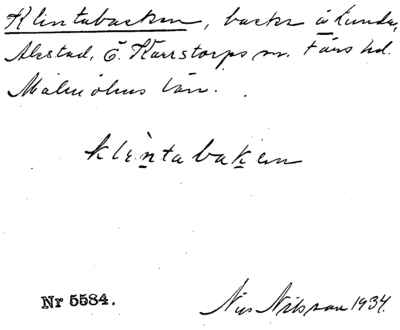 Klintabacken, backe å Kunda,
Alestad, Ö. Kärrstorps sn. Färs hd.
Malmöhus län.
klìntabakən
Nr 5584.
Nils Nilsson 1934.